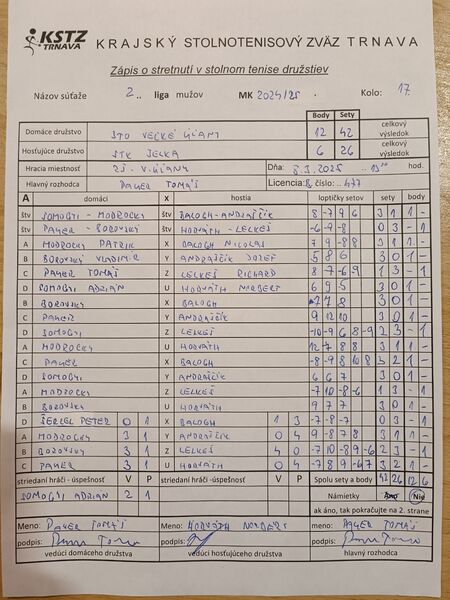 KSTZ TRNAVA KRAJSKÝ STOLNOTENISOVÝ ZVÄZ TRNAVA
Zápis o stretnutí v stolnom tenise družstiev
Názov súťaže 2.. liga mužov MK 2024/25 . Kolo: 17.
Body Sety
Domáce družstvo STO VEĽKÉ ÚĽANY 12 42 celkový výsledok
Hosťujúce družstvo STK JELKA 6 26 celkový výsledok
Hracia miestnosť ZŠ - V. ÚĽANY Dňa: 8.3.2025 hod.
Hlavný rozhodca PAYER TOMÁŠ Licencia: B číslo: 477
A domáci X hostia loptičky setov sety body
štv SOMOGYI - MODROCKY štv BALOGH - ANDRÁŠČIK 8 -7 9 6 3 1 1 -
štv PAYER - BOROVSKÝ štv HORVÁTH - LELKEŠ -6 -9 -8 0 3 - 1
A MODROCKY PATRIK X BALOGH NICOLAS 7 9 -8 8 3 1 1 -
B BOROVSKÝ VLADIMÍR Y ANDRÁŠČIK JOZEF 5 8 6 3 0 1 -
C PAYER TOMÁŠ Z LELKEŠ RICHARD 8 -7 -6 -9 1 3 - 1
D SOMOGYI ADRIAN U HORVÁTH NORBERT 6 9 5 3 0 1 -
B BOROVSKÝ X BALOGH 7 8 3 0 1 -
C PAYER Y ANDRÁŠČIK 9 12 10 3 0 1 -
D SOMOGYI Z LELKEŠ -10 -9 6 8 -9 2 3 - 1
A MODROCKY U HORVÁTH 12 -7 8 8 3 1 1 -
C PAYER X BALOGH -8 -9 8 10 8 3 2 1 -
D SOMOGYI Y ANDRÁŠČIK 6 6 7 3 0 1 -
A MODROCKY Z LELKEŠ -7 10 -8 -6 1 3 - 1
B BOROVSKÝ U HORVÁTH 9 7 7 3 0 1 -
D ŠEBEL PETER 0 1 X BALOGH 1 3 -7 -8 -7 0 3 - 1
A MODROCKY 3 1 Y ANDRÁŠČIK 0 4 9 -8 7 8 3 1 1 -
B BOROVSKÝ 3 1 Z LELKEŠ 4 0 -7 10 -8 9 -6 2 3 - 1
C PAYER 3 1 U HORVÁTH 0 4 -7 8 9 -6 7 3 2 1 -
striedaní hráči - úspešnosť V P striedaní hráči - úspešnosť V P Spolu sety a body 42 26 12 6
SOMOGYI ADRIAN 2 1 Námietky Áno Nie
ak áno, tak pokračujte na 2. strane
Meno: PAYER TOMÁŠ Meno: HORVÁTH NORBERT meno: PAYER TOMÁŠ
podpis: podpis: podpis:
vedúci domáceho družstva vedúci hosťujúceho družstva hlavný rozhodca